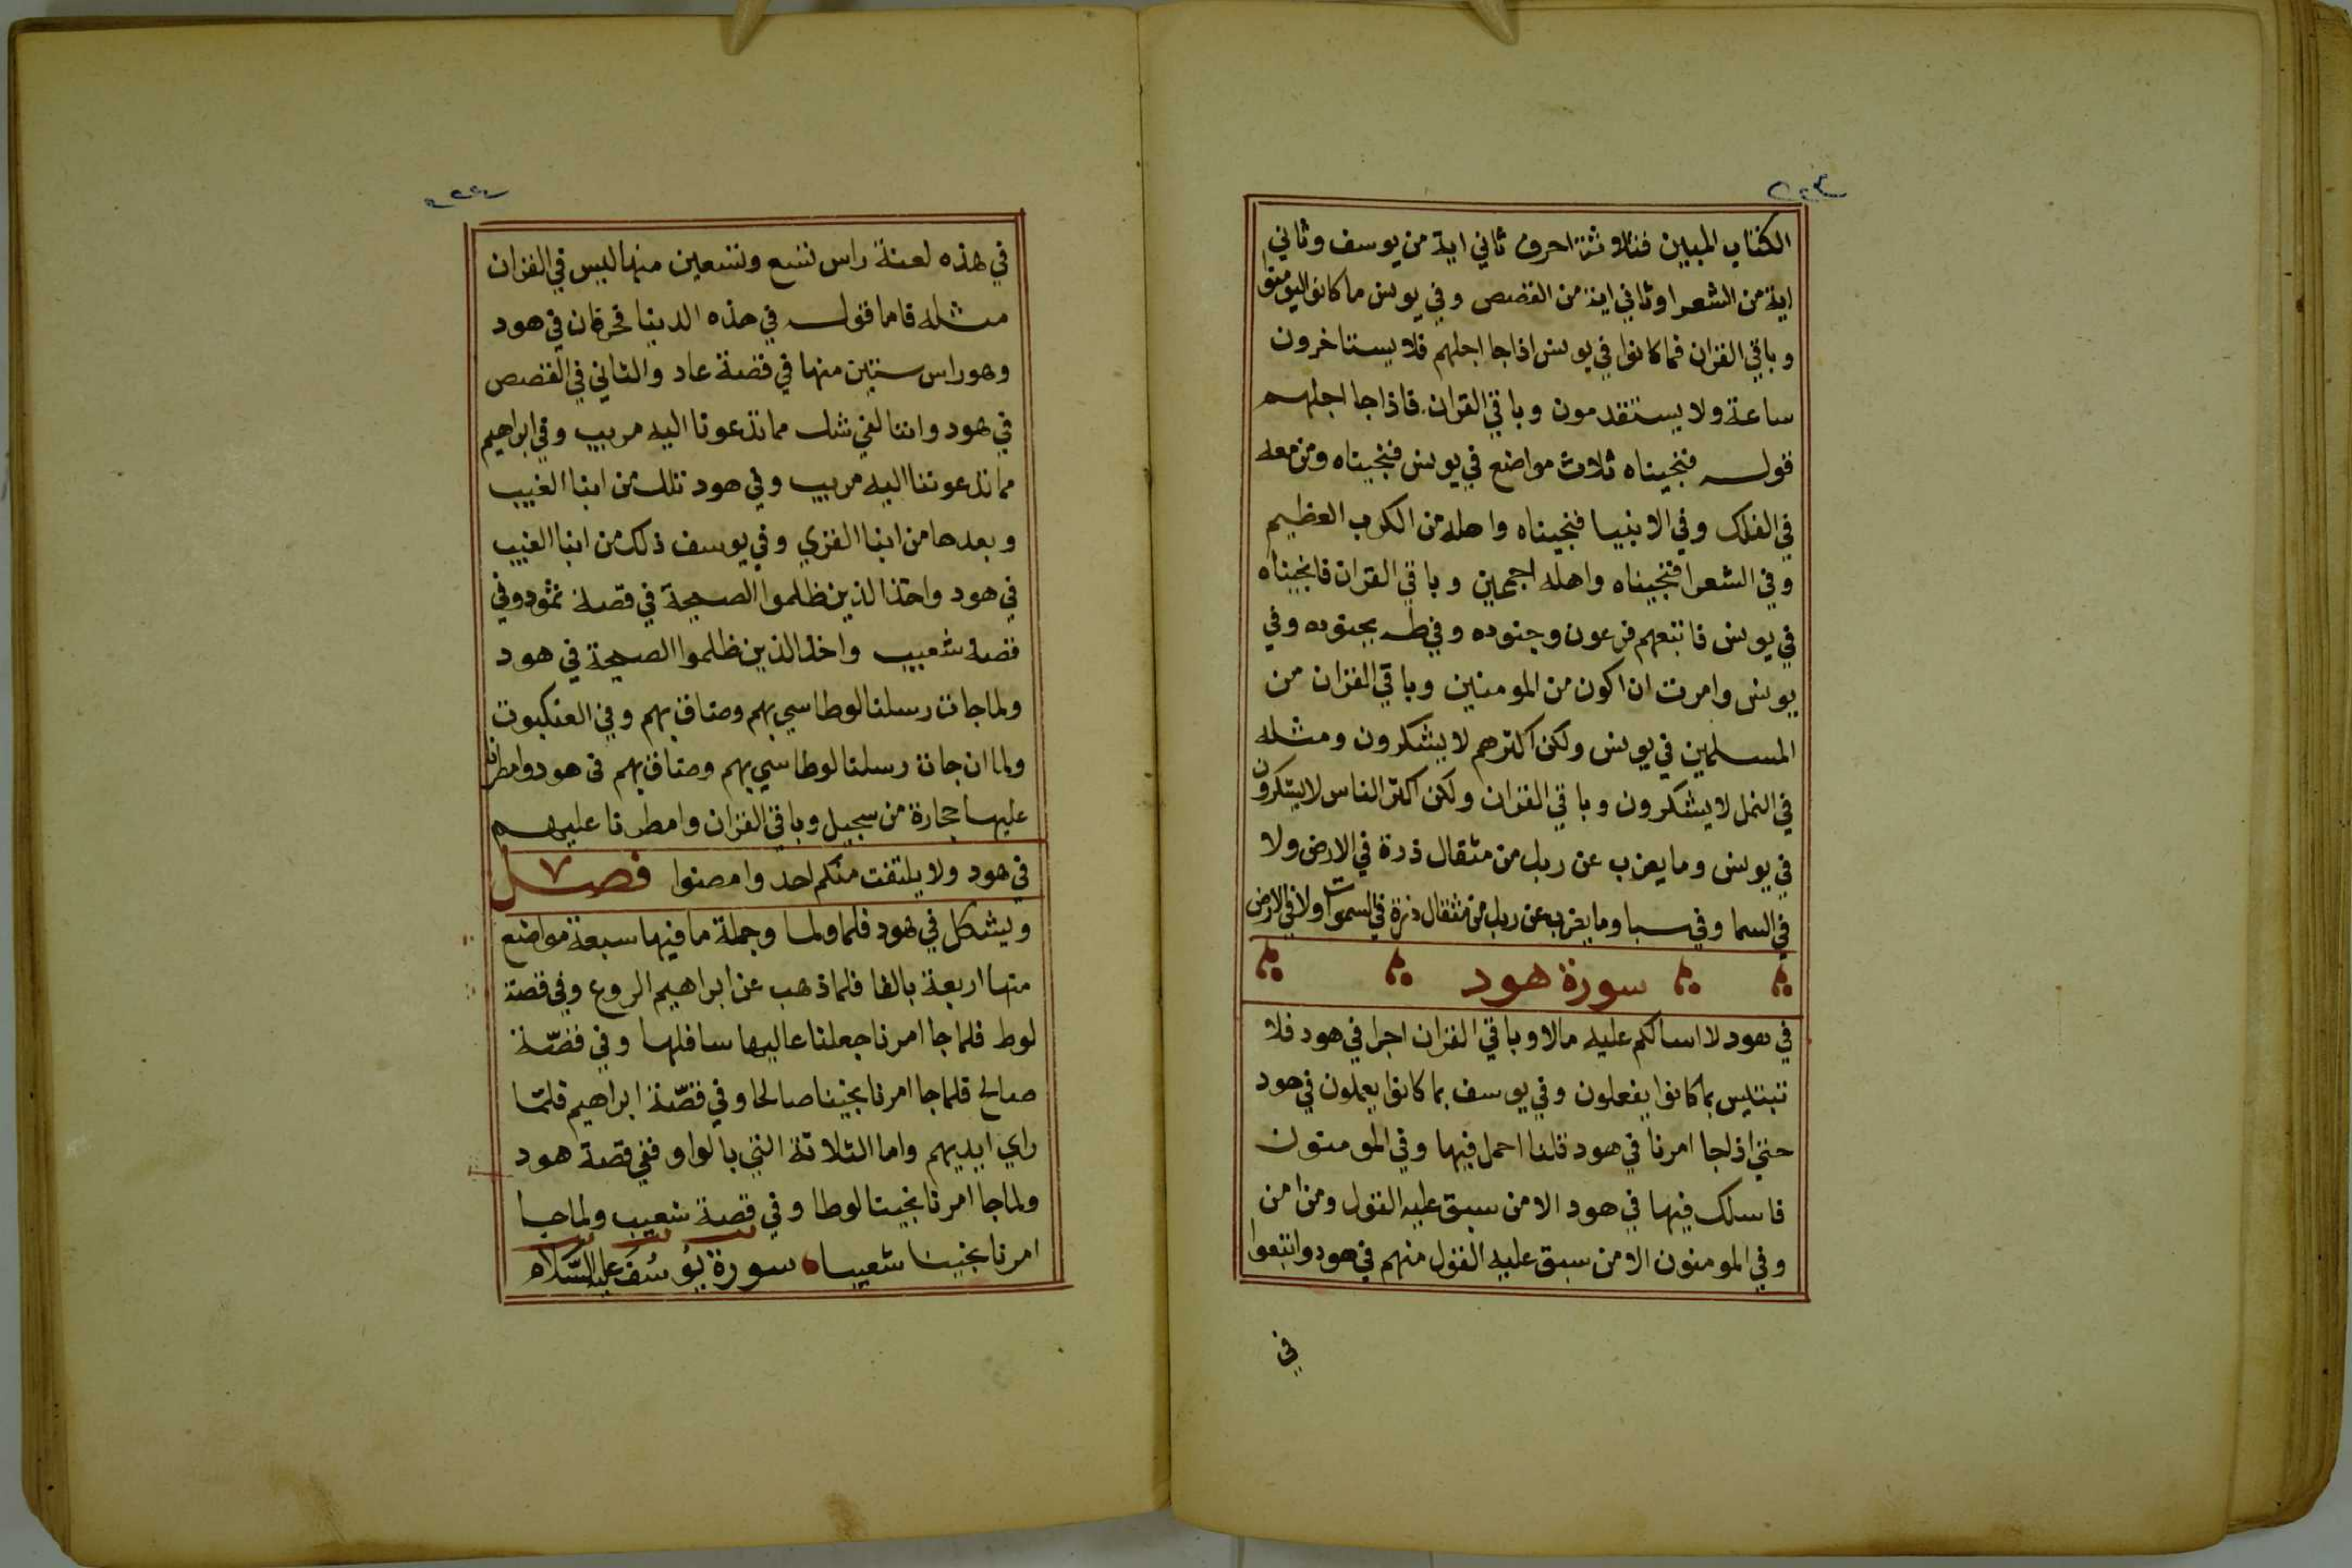 ٢٢٣
الكتاب المبين فثلاوثة احرف ثاني اية من يوسف وثاني
اية من الشعرا وثاني اية من القصص وفي يونس ما كانوا ليومنوا
وباقي القران فما كانوا في يونس اذا جا اجلهم فلا يستاخرون
ساعة ولا يستقدمون وباقي القران فاذا جا اجلهم
قوله فنجيناه ثلاث مواضع في يونس فنجيناه ومن معه
في الفلك وفي الانبيا فنجيناه واهله من الكرب العظيم
وفي الشعرا فنجيناه واهله اجمعين وباقي القران فانجيناه
في يونس فاتبعهم فرعون وجنوده وفي طه بجنوده وفي
يونس وامرت ان اكون من المومنين وباقي القران من
المسلمين في يونس ولكن اكثرهم لا يشكرون ومثله
في النمل لا يشكرون وباقي القران ولكن اكثر الناس لا يشكرون
في يونس وما يعزب عن ربك من مثقال ذرة في الارض ولا
في السما وفي سبا وما يعزب عن ربك من مثقال ذرة في السموات ولا في الارض
سورة هود
في هود لا اسالكم عليه مالا وباقي القران اجرا في هود فلا
تبتئس بما كانوا يفعلون وفي يوسف بما كانوا يعملون في هود
حتي اذا جا امرنا في هود قلنا احمل فيها وفي المومنون
فاسلك فيها في هود الا من سبق عليه القول ومن امن
وفي المومنون الا من سبق عليه القول منهم في هود واتبعوا
في
في هذه لعنة راس تسع وتسعين منها ليس في القران
مثله فاما قوله في هذه الدنيا فحرفان في هود
وهو راس ستين منها في قصة عاد والثاني في القصص
في هود واننا لفي شك مما تدعونا اليه مريب وفي ابراهيم
مما تدعوننا اليه مريب وفي هود تلك من انبا الغيب
وبعدها من انبا القري وفي يوسف ذلك من انبا الغيب
في هود واخذ الذين ظلموا الصيحة في قصة ثمود وفي
قصة شعيب واخذ الذين ظلموا الصيحة في هود
ولما جات رسلنا لوطا سي بهم وضاق بهم وفي العنكبوت
ولما ان جات رسلنا لوطا سي بهم وضاق بهم في هود وامطرنا
عليها حجارة من سجيل وباقي القران وامطرنا عليهم
في هود ولا يلتفت منكم احد وامضوا فصل
ويشكل في هود فلما ولما وجملة ما فيها سبعة مواضع
منها اربعة بالفا فلما ذهب عن ابراهيم الروع وفي قصة
لوط فلما جا امرنا جعلنا عاليها سافلها وفي قصّة
صالح فلما جا امرنا نجينا صالحا وفي قصّة ابراهيم فلمّا
راي ايديهم واما الثلاثة التي بالواو ففي قصة هود
ولما جا امرنا نجينا لوطا وفي قصة شعيب ولما جا
امرنا نجينا شعيبا سورة يُوسُف عليه السّلام